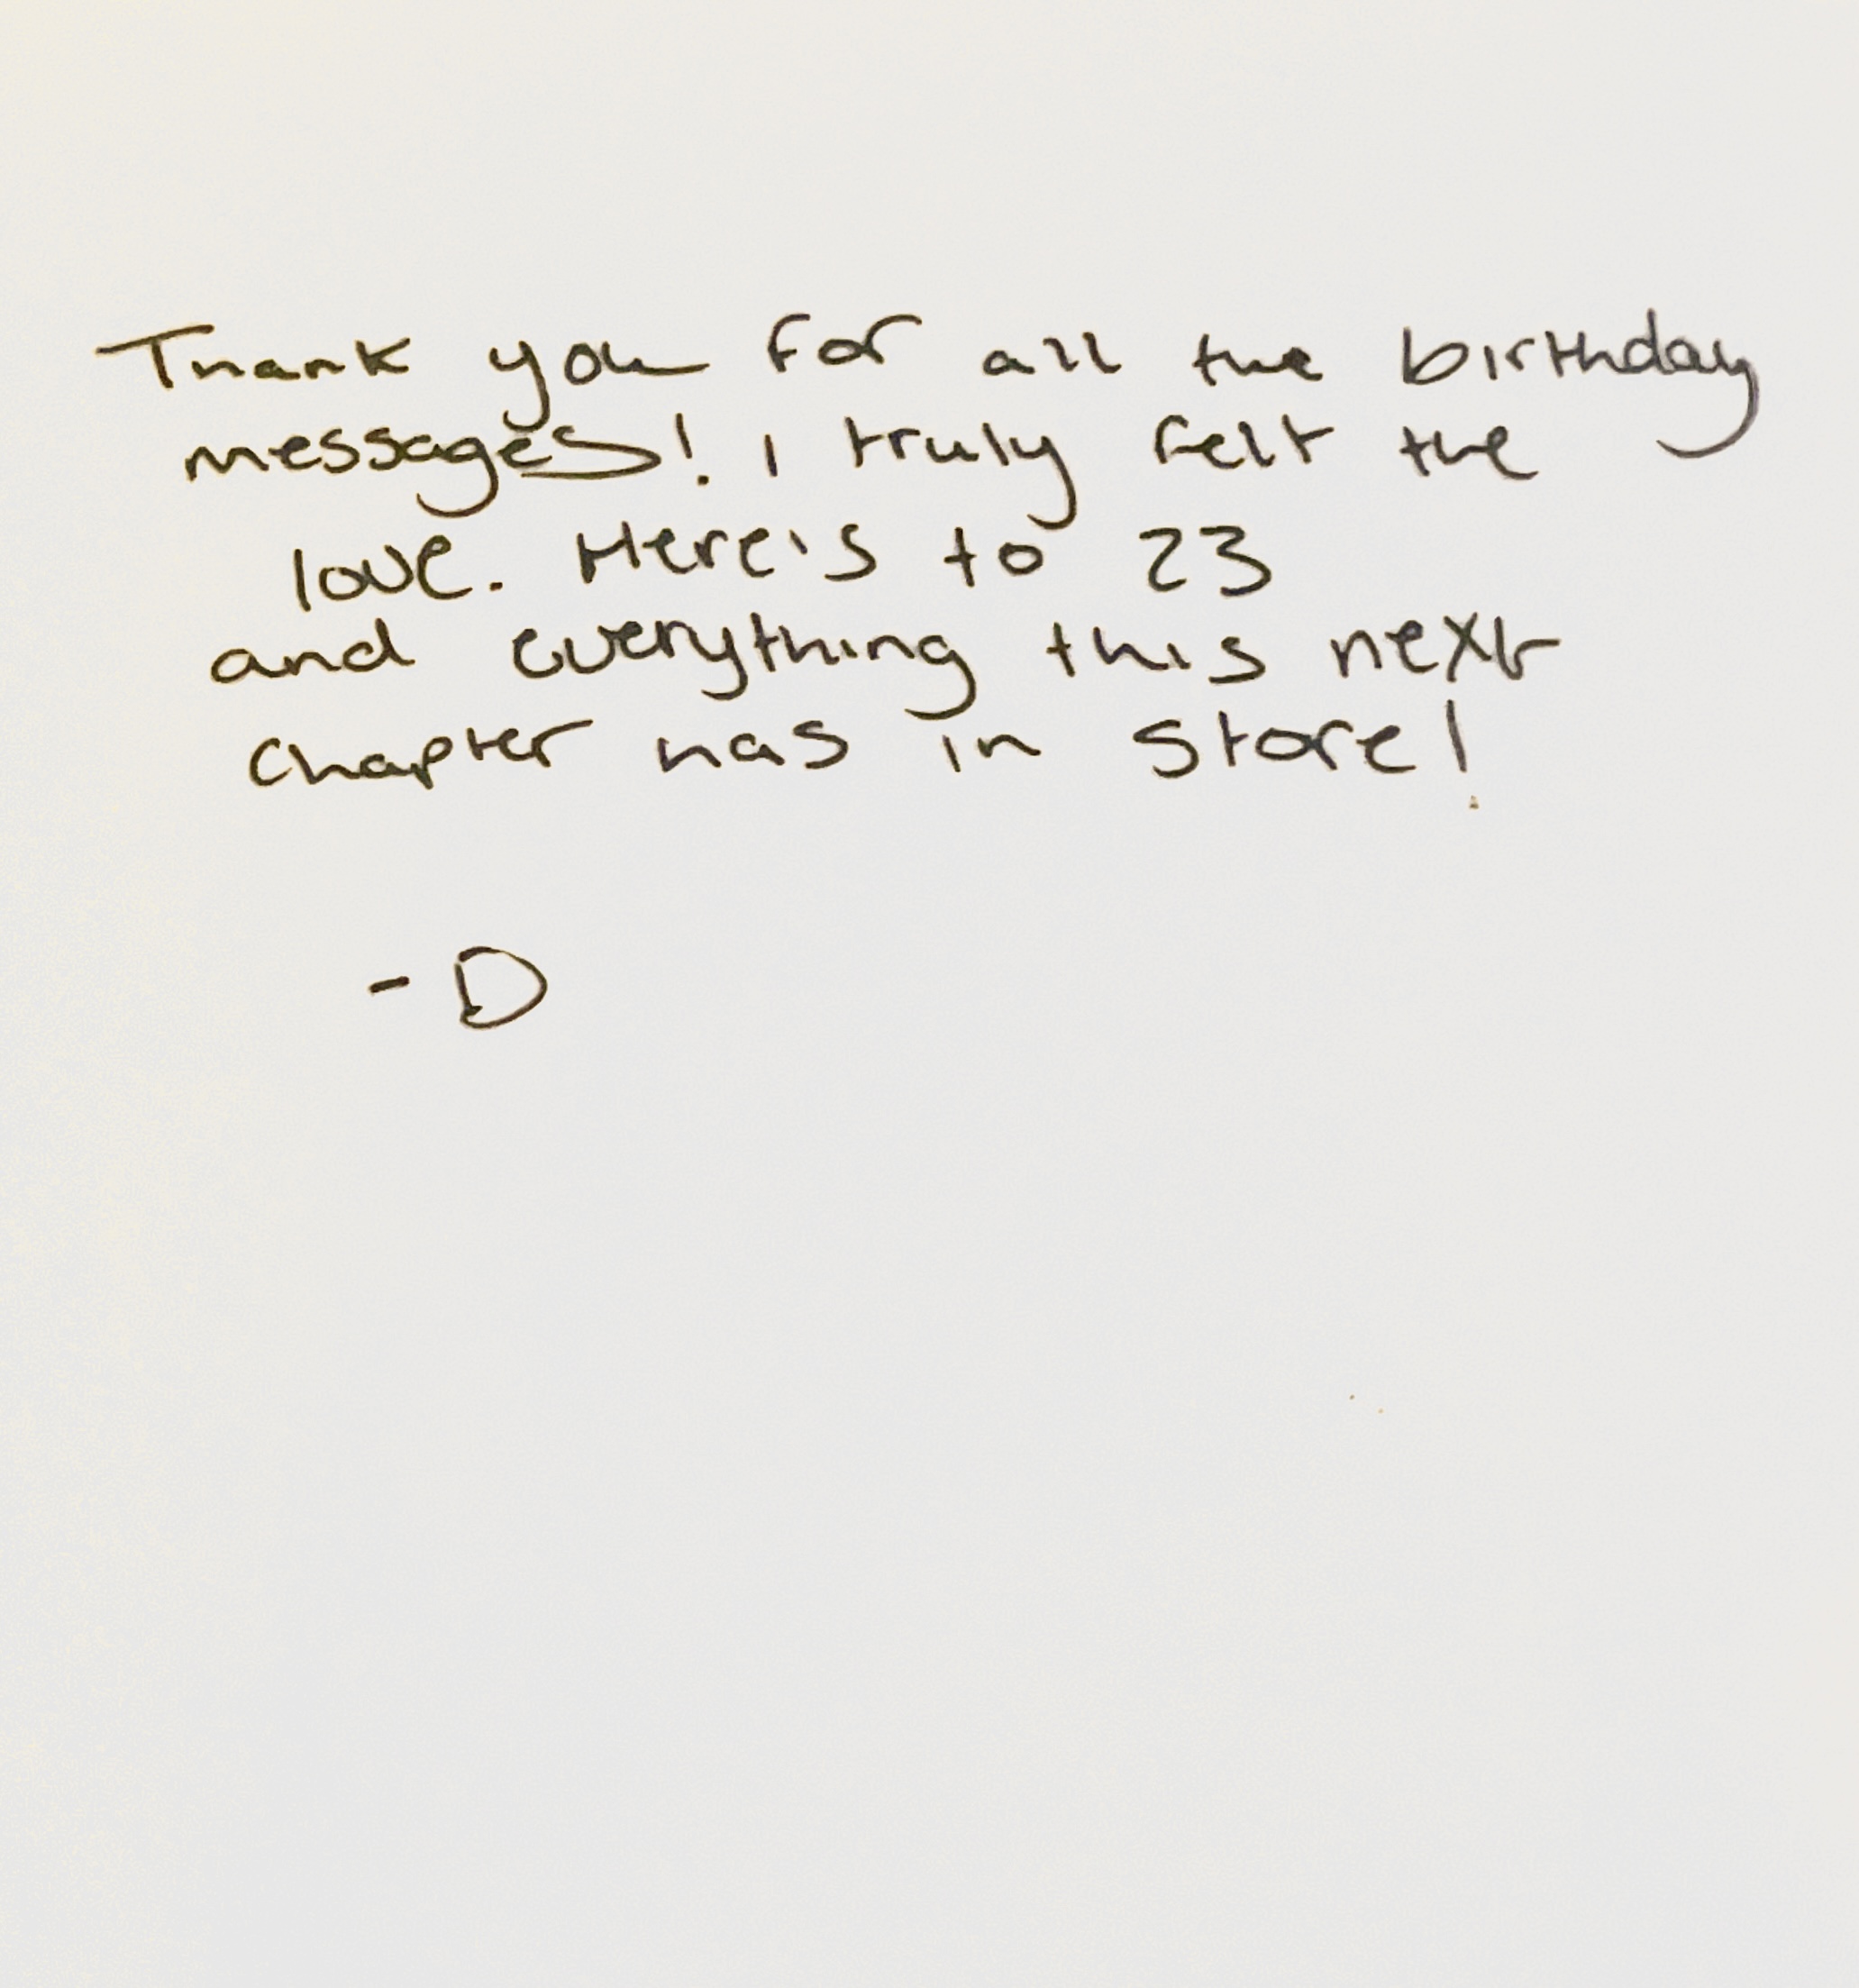 Thank you for all the birthday
messages! I truly felt the
love. Here's to 23
and everything this next
chapter has in store!
- D